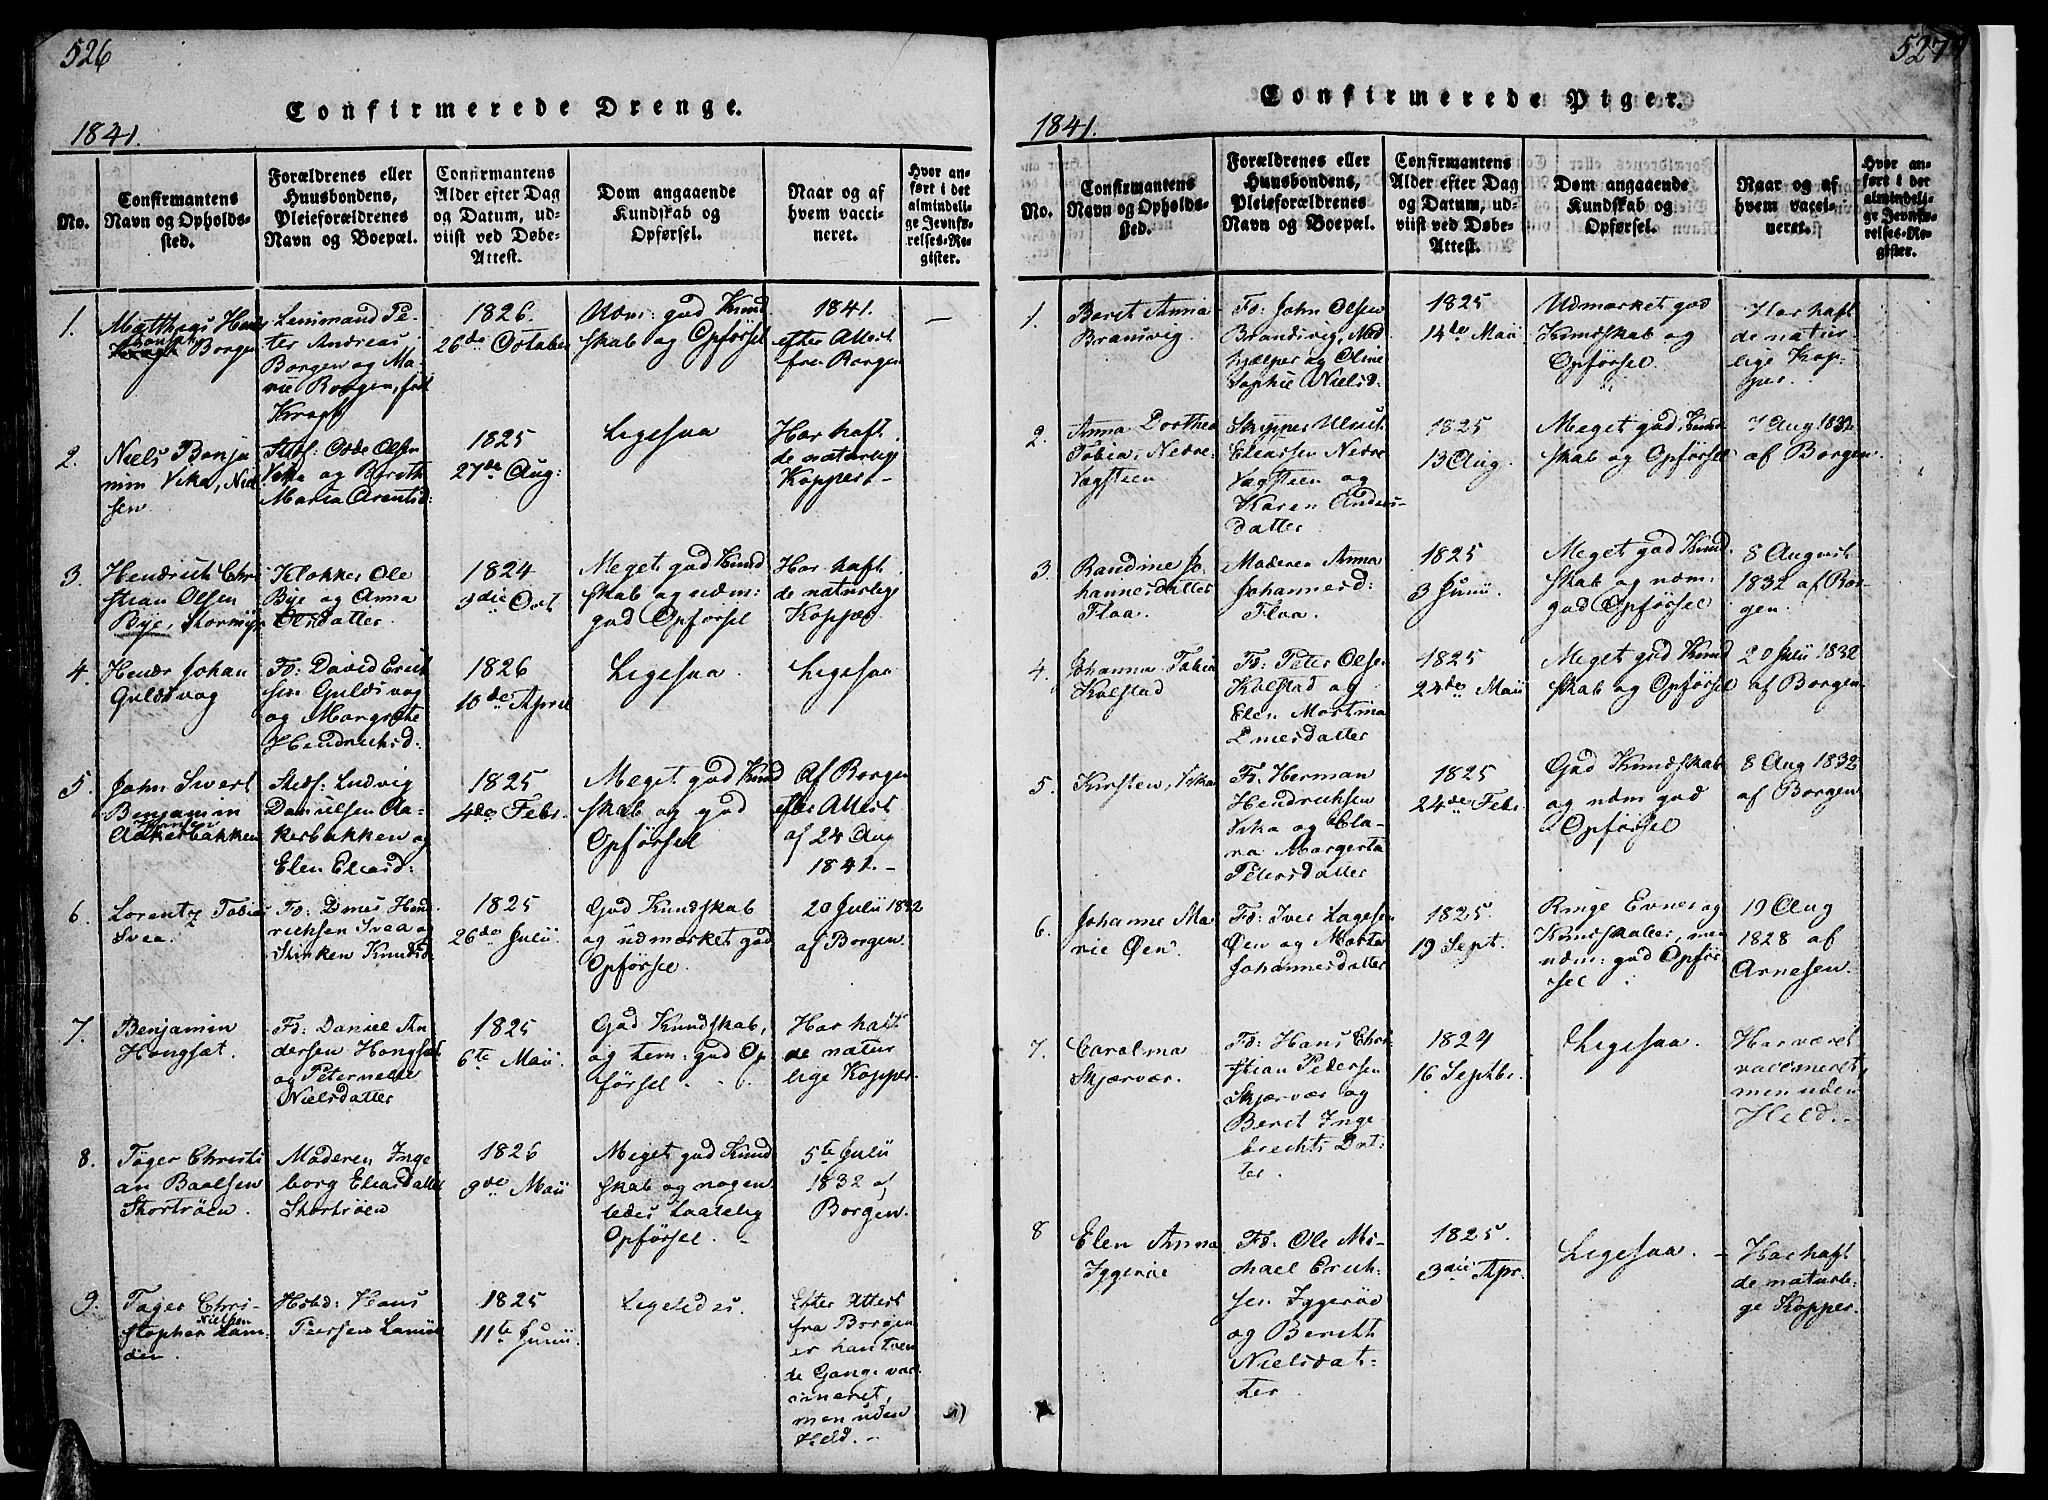 526
Confirmerede Drenge.
1841.
No.
Confirmantens
Navn og Opholds-
sted.
Forældrenes eller
Huusbondens,
Pleieforældrenes
Navn og Boepæl.
Confirmantens
Alder efter Dag
og Datum, ud-
viist ved Døbe-
Attest.
Dom angaaende
Kundskab og
Opførsel.
Naar og af
hvem vacci-
neret.
Hvor an-
ført i det
almindeli-
ge Jevnfø-
relses-Re-
gister.
1.
Matthæus
Borgen
Lensmand Pe-
ter Andreas
Borgen og Ma-
rie Borgen, fød
1826.
26de October
Udm: god Kund
skab og Opførsel
1841.
efter Attest
fra Borgen
2.
Niels Benja
min Vika, Niel
sen
Stedf: Odde Olsen
Vika og Bereth
Maria Arentsd:
1825
27de Aug:
Ligesaa
Har haft
de naturlige
Kopper.-
3.
Hendrich Chri
stian Olsen
Bye,
Klokker Ole
Bye og Anna
Olsdatter.
1824
9die Oct
Meget god Kund
skab og udm:
god Opførsel
Har haft
de naturlige
Kopper
4.
Johan
Guldsvog
Fd: David Erich
sen Guldsvog
og Margrethe
Hendrichsd:
1826
10de April
Ligesaa
Ligesaa
5.
John Sivert
Benjamin
Hansen
Aakerbakken
Stedf: Ludvig
Danielsen Aa-
kerbakken og
Elen Eliasd:
1825
4de Febr.
Meget god Kund
skab og god
Opførsel
Af Borgen
efter Attest
af 24 Aug
1841.-
6.
Lorentz Tobias
Svea.
Fd: Hend
richsen Svea og
Knudsd.
1825
26de Julii
God Kundskab
og udmærket god
Opførsel.
20 Julii 1832
af Borgen
7.
Benjamin
Hongsæt.
Fd: Daniel An
dersen Hongsæt
og Peternelle
Nielsdatter
1825
6te Maii
God Kundskab,
og tem: god Op
førsel.
Har haft
de natur
lige Kopper.
8.
Tøger Christi
an Baalsen
Stortrøen.
Moderen Inge
borg Eliasdatter
Stortrøen
1826
9de Maii
Meget god Kund
skab og nogen
ledes taalelig
Opførsel.
5te Julii
1832 af
Borgen.
9.
Tøger Chris-
Nielsen
stopher Lam-
øen.
Hsbd: Hans
Peersen
1825
11te Junii
Ligeledes.
Efter Attest
fra Borgen
er han tven
de Gange vac
cineret,
men uden
Held.-
527
Confirmerede Piger.
1841.
No.
Confirmantens
Navn og Opholds-
sted.
Forældrenes eller
Huusbondens,
Pleieforældrenes
Navn og Boepæl.
Confirmantens
Alder efter Dag
og Datum, ud-
viist ved Døbe-
Attest.
Dom angaaende
Kundskab og
Opførsel.
Naar og af
hvem vacci-
neret.
Hvor an-
ført i det
almindeli-
ge Jevnfø-
relses-Re-
gister.
1.
Beret Anna
Brandsvig.
Fd: John Olsen
Brandsvig, Med
hjælper og Oline
Sophie Nielsd:
1825
14de Maii
Udmærket god
Kundskab og
Opførsel.
Har haft
de natur
lige Kop-
per.
2.
Anna Dorthea
Tobia, Nedre-
Vægsteen
Skipper
Eliassen Nedre
Vægsteen og
Karen Anders-
datter
1825
13 Aug.
Meget god Kund
skab og Opførsel
7 Aug 1832
af Borgen.
3.
Randine Jo
hannesdatter
Flaa.
Moderen Anna
Johannesd:
Flaa.
1825
3 Junii.
Meget god Kund
skab og udm:
god Opførsel
8 August
1832 af Bor-
gen.
4.
Johanna Tobia
Kolstad
Fd: Peter Olsen
Kolstad og
Elen Martina
datter
1825
24de Maii
Meget god Kund
skab og Opførsel
20 Julii 1832
af Borgen
5.
Kirsten, Vika
Fd: Herman
Hendrichsen
Vika og Cla-
ra Margreta
Petersdatter
1825
24de Febr.
God Kundskab
og udm god
Opførsel
8 Aug 1832
af Borgen
6.
Johanne Ma
rie Øen.
Fd: Iver Lagesen
Øen og Marta
Johannesdatter
1825.
19 Sept.
Ringe Evner og
Kundskaber, men
udm: god Opfør
sel.
19 Aug
1828 af
Arnesen.
7.
Carolina
Skjærvær.
Fd: Hans Chri
stian Pedersen
Skjærvær og
Beret Inge
brechts Dat-
ter.
1824
16 Septbr.
Ligesaa.
Har været
vaccineret,
men uden
Held.-
8
Elen Anna
Iggerøe
Fd: Ole Mi-
chael Erich-
sen Iggerøe
og Berett
Nielsdat-
ter
1825.
3die Apr.
Ligesaa. -
Har haft
de naturli-
ge Kopper.